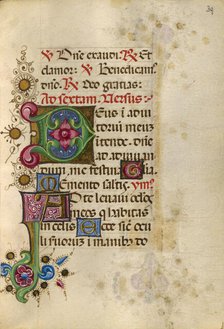 39
℣ Dñe exaudi ℟ Et
clamor ℣ Benedicam⁹
dño ℟ Deo gratias
Ad sextam Versus
Deus i adiu
toriuʒ meuʒ
itende. Dñe
ad adiuuan
dum me festina Glia
Memento salutis ymꝰ
Ad te leuaui oclos
meos q habitas
in celis Ecce sic
oculi seruoruʒ i manibus do